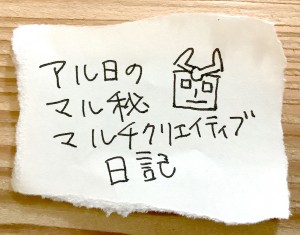 アル日の
マル秘
マルチクリエイティブ
日記